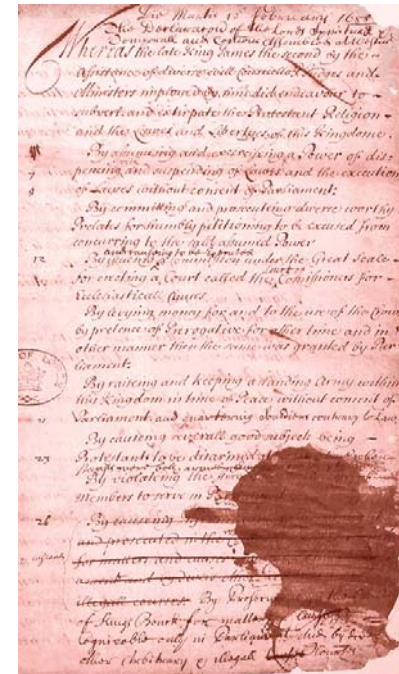 Die Martis 12 Februarii 1688
The Declaration of the Lords Spirituall &
Temporall and Comons Assembled at
Whereas the late King James the second by the
Assistance of diverse evill Councellors Judges and
Ministers imployed by him did endeavour to
subvert and extirpate the Protestant Religion
and the Lawes and Libertyes of this Kingdome.
By assuming and exercising a Power of dis
7 pencing with and suspending of Lawes and the execution
8 of Lawes without consent of Parliament:
By committing and prosecuteing diverse worthy
Prelates for humbly petitioning to be excused from
concurring to the said assumed Power
and causing to be executed
12 By issueing a Comission under the Great Seale
for erecting a Court called the Court of Comissioners for
Ecclesiasticall Causes
By levying money for and to the use of the Crowne
by pretence of Prerogative for other time and in
other manner then the same was granted by Par
liament:
By raiseing and keeping a standing Army within
this Kingdom in time of Peace without consent of
Parliament and quartering Souldiers contrary to Law
By causeing severall good subjects being
23 Protestants to be disarmed at
By violateing the
Members to serve in
26 By causeing
and prosecuted in the
for matters and causes

illegall courses. By
of Kings Bench for matters
Cognizable only in Parliament and by
other Arbitrary & illegall Courses